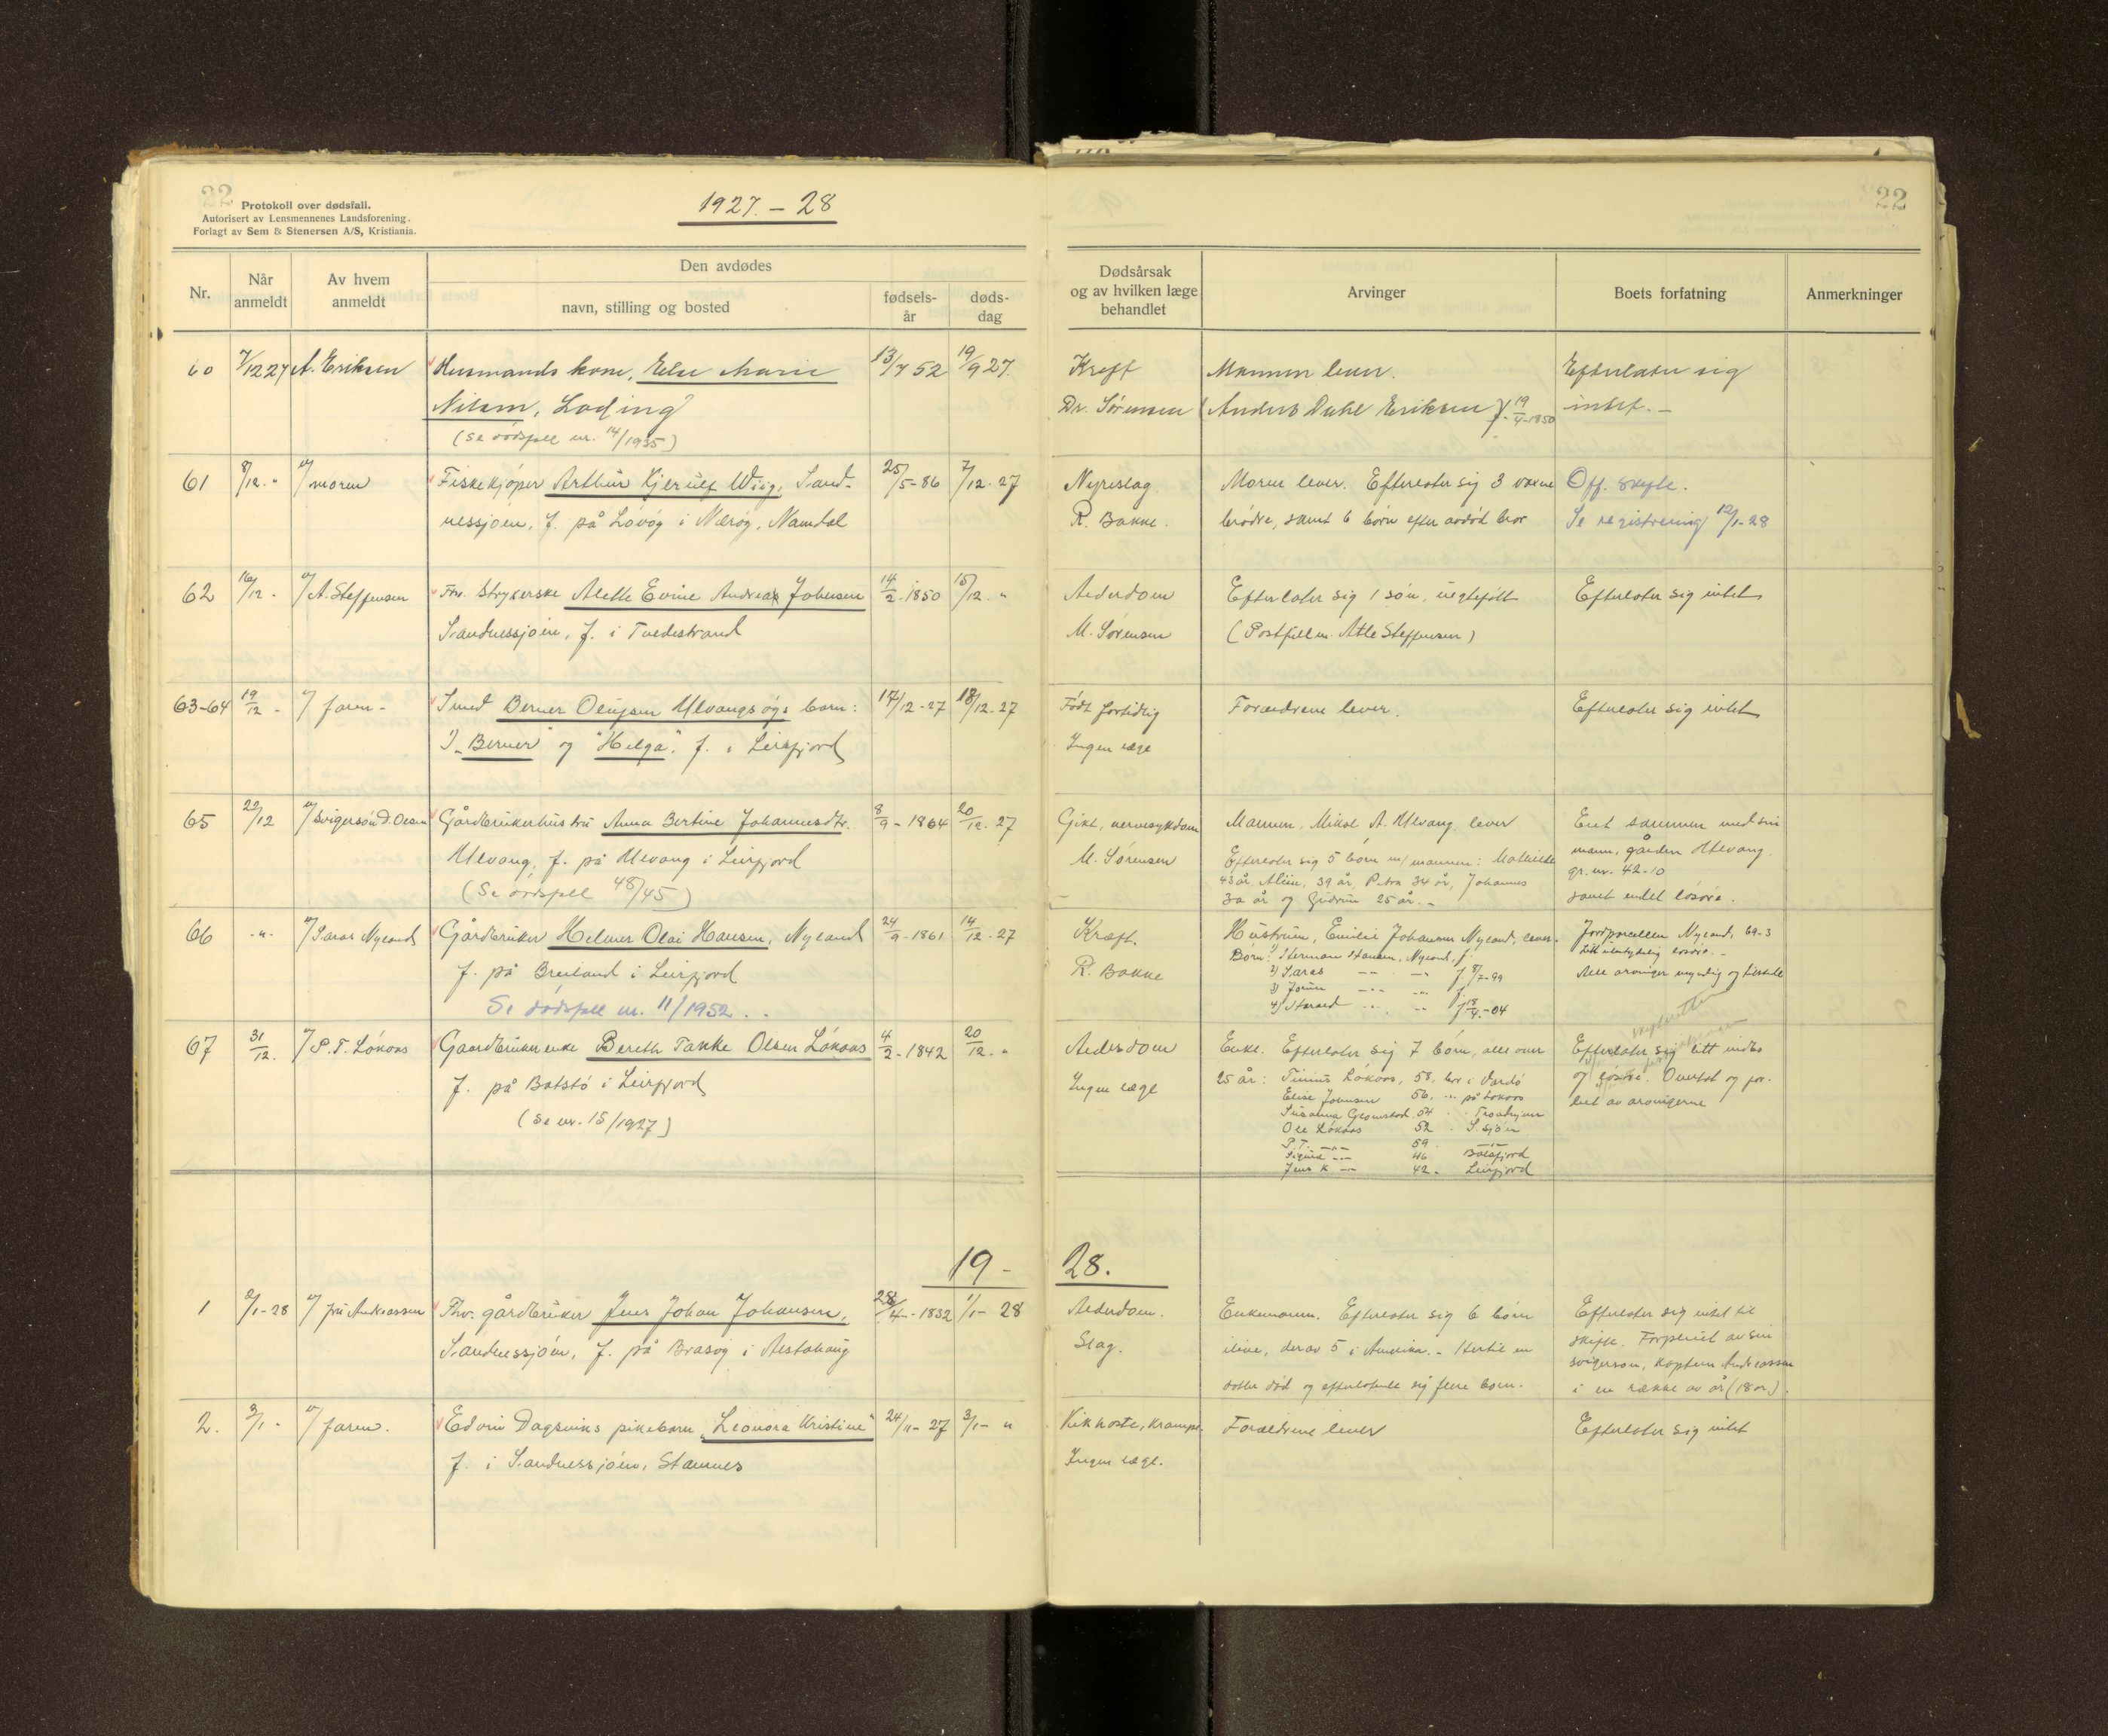 22
Protokoll over dødsfall.
Autorisert av Lensmennenes Landsforening.
Forlagt av Sem & Stenersen A/S, Kristiania.
1927. – 28
22
Nr.
Når anmeldt
Av hvem anmeldt
Den avdødes
navn, stilling og bosted
fødselsår
dødsdag
Dødsårsak og av hvilken læge behandlet
Arvinger
Boets forfatning
Anmerkninger
60 7/12 27 A. Eriksen Husmands kone, Else Marie 13/7 52 19/9 27. Kreft Mannen lever. Efterlater sig
Nilsen, Lading Dr. Sørensen (Anders Dahl Eriksen f. 19/4-1850 intet. –
(Se dødsfall nr. 14/1935)
61 8/12 " v/ moren Fiskekjøper Arthur Kjerulf Wiig, Sand- 25/5-86 7/12-27 Nyreslag Moren lever. Efterlater sig 3 voxne Off. skifte.
nessjøen, f. på Løvøy i Nærøy, Namdal R. Bakke. brødre, samt 6 børn efter avdød bror Se registrering 12/1-28
62 16/12 - v/ A. Steffensen Frv. strykerske Alette Evine Andrea Johnsen 14/2-1850 15/12 " Alderdom Efterlater sig 1 søn, uegtefødt Efterlater sig intet
Sandnessjøen, f. i Tvedestrand M. Sørensen (Postfullm. Atle Steffensen)
63-64 19/12 - v/ faren - Smed Berner Olufsen Ulvangsøys barn: 17/12-27 18/12-27 Født fortidlig Forældrene lever. Efterlater sig intet
"Berner" og "Helga". f. i Leirfjord Ingen læge
65 22/12 v/ svigersøn D. Olsen Gårdbrukerhustru Anna Bertine Johannesdtr. 8/9-1864 20/12-27 Gikt, nervesykdom Mannen, Mikal A. Ulvang, lever Eiet sammen med sin
Ulvang, f. på Ulvang i Leirfjord M. Sørensen Efterlater sig 5 børn m/ mannen: Mathilde mann, gården Ulvang
(Se dødsfall 48/45) 43 år, Alfin, 39 år, Petra 34 år, Johannes gr. nr. 42-10
32 år og Gudrun 25 år. – samt endel løsøre.
66 -"- v/ Saras Nyland Gårdbruker Helmer Olai Hansen, Nyland 24/9-1861 14/12-27 Kræft. Hustruen, Emilie Johansen Nyland, lever. Jordparcellen Nyland, 69-3
f. på Breiland i Leirfjord R. Bakke Børn: 1) Herman Hansen, Nyland, f. litt ubetydelig løsøre. –
Se dødsfall nr. 11/1952.. 2) Saras -"- -"- f. 8/7-99 Alle arvinger myndig og tilstede
3) Jorun -"- -"- f.
4) Harald -"- -"- f. 18/4-04
67 31/12. v/ P. T. Løkaas Gaardbrukerenke Bereth Tanke Olsen Løkaas 4/2-1842 20/12 - " Alderdom Enke. Efterlater sig 7 børn, alle over Efterlater sig litt indbo
f. på Botstø i Leirfjord Ingen læge 25 år: Løkaas, 58, bor i Vardø og løsøre. Overtat og for-
(Se nr. 15/1927) Elise Johnsen 56, -"- på Løkaas delt av arvingerne
Susanna 54
Ole Løkaas 52 - S.sjøen
P.T. -"- 59 -"-
-"- 46 Balsfjord
Jens K -"- 42 - Leirfjord
19 – 28.
1 2/1-28 v/ fru Andreassen Fhv. gårdbruker Jens Johan Johansen, 28/4-1832 1/1-28 Alderdom. Enkemann. Efterlater sig 6 børn Efterlater sig intet til
Sandnessjøen, f. på Brasøy i Alstahaug Slag. ilive, derav 5 i Amerika. – Hertil en skifte. Forpleiet av sin
datter død og efterlatende sig flere barn. svigersøn, kaptein Andreassen
i en række av år (18 år).
2. 3/1 - v/ faren. Edvin Dagsviks pikebarn "Leonora Kristine" 24/11-27 3/1- " Kikhoste, krampe. Forældrene lever Efterlater sig intet
f. i Sandnessjøen, Stamnes Ingen læge.